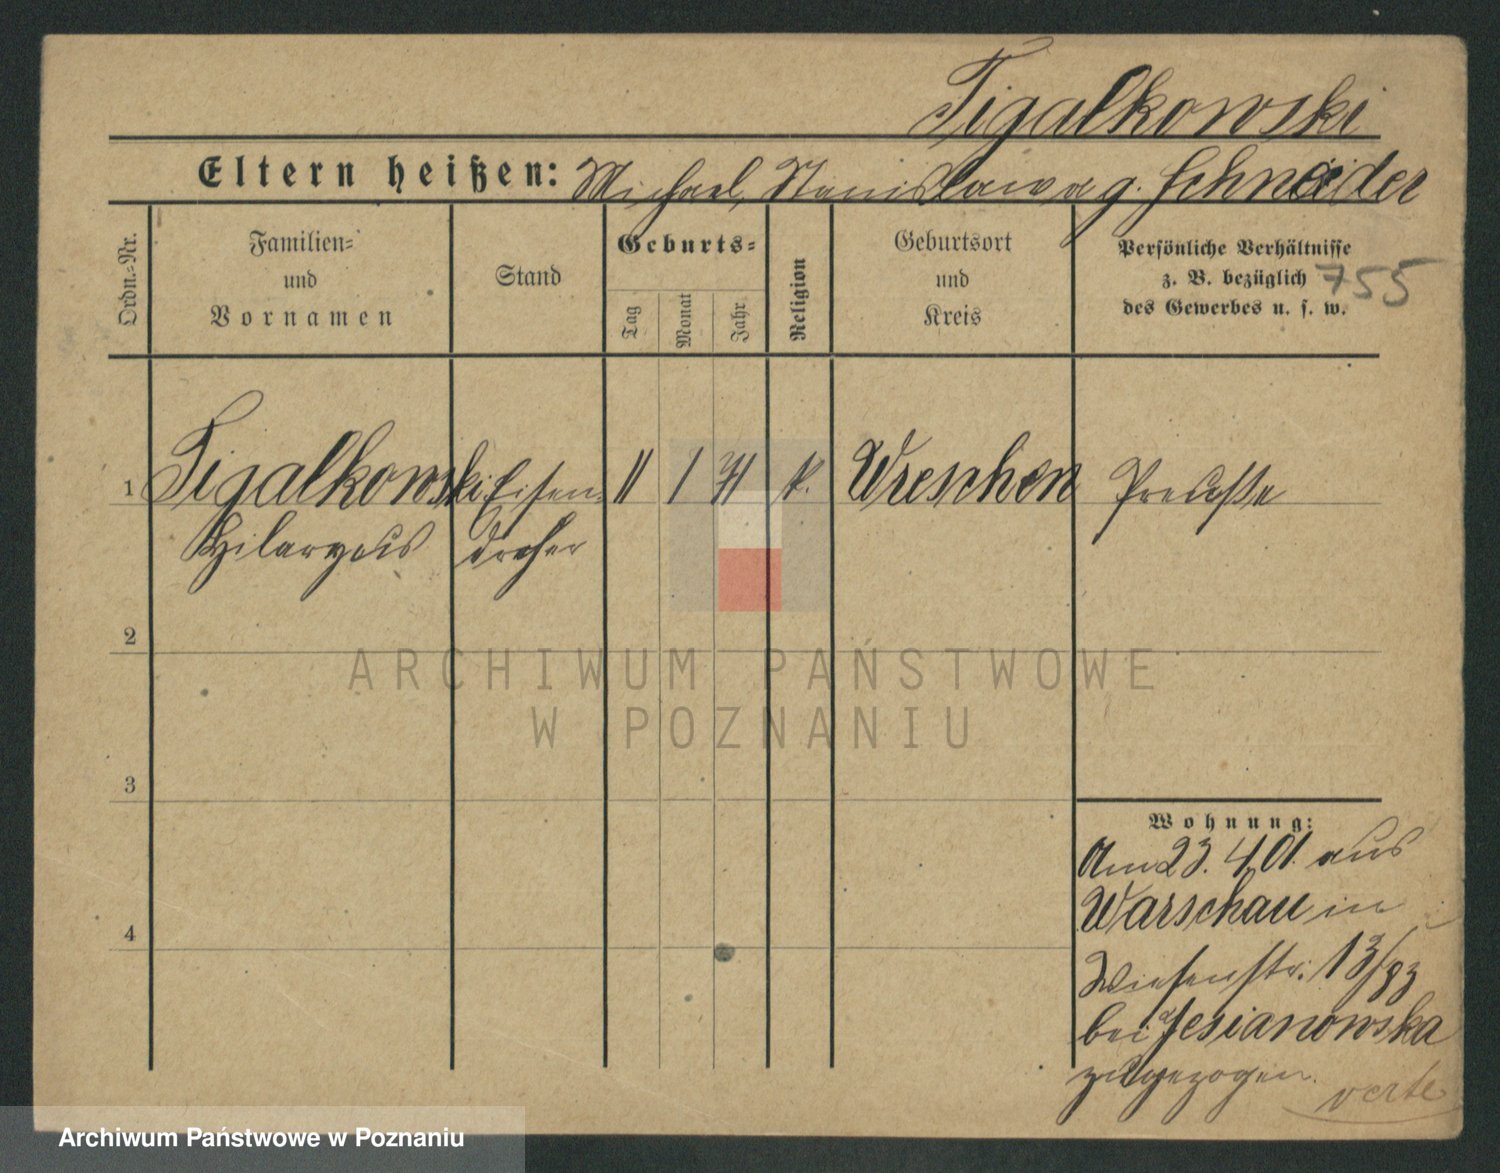 Figalkowski
Eltern heißen: Michael, Stanislawa g. Schneider
Ordn.-Nr.
Familien=
und
Vornamen
Stand
Geburts=
Tag
Monat
Jahr
Religion
Geburtsort
und
Kreis
Persönliche Verhältnisse
z. B. bezüglich
des Gewerbes u. s. w.
755
1 Figalkowski Eisen= 11 1 71 k. Wreschen Preusse
Hilaryus dreher
2
ARCHIWUM PAŃSTWOWE
W POZNANIU
3
Wohnung:
Am 23. 4. 01. aus
Warschau in
Wiesenstr. 13/83
bei Jesianowska
zugezogen.
verte
4
Archiwum Państwowe w Poznaniu